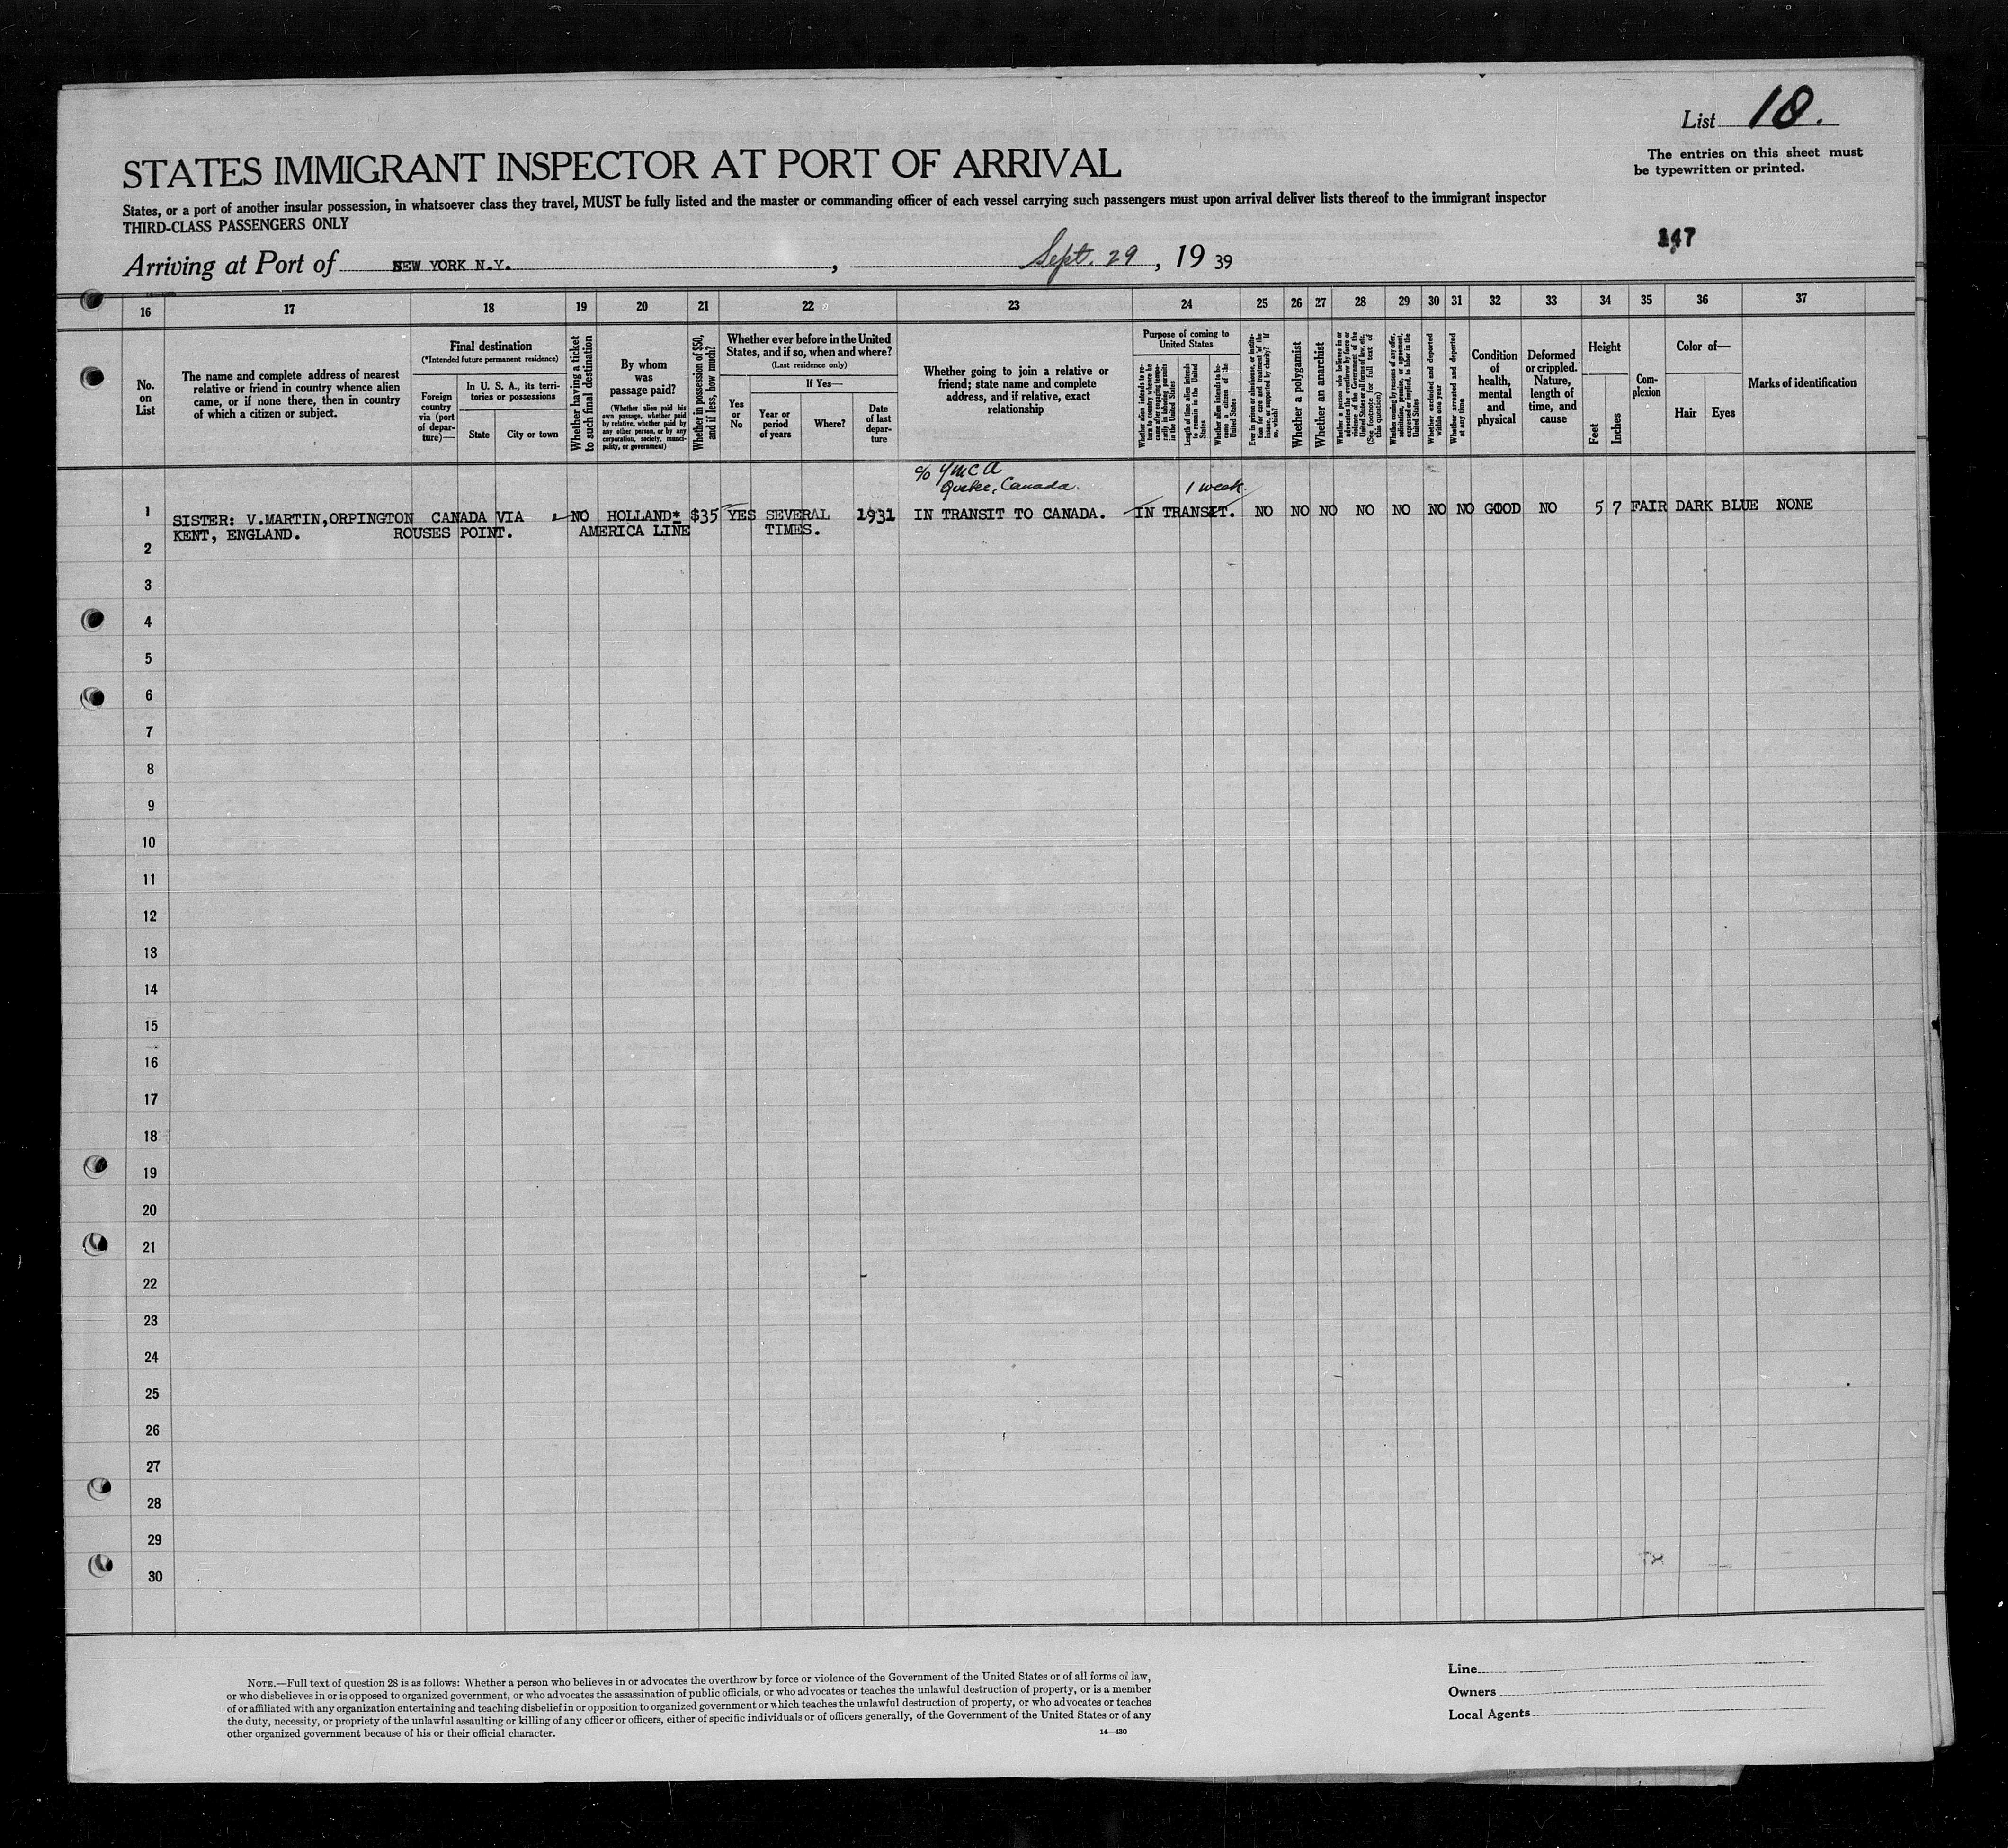 List 18.
The entries on this sheet must
be typewritten or printed.
STATES IMMIGRANT INSPECTOR AT PORT OF ARRIVAL
States, or a port of another insular possession, in whatsoever class they travel, MUST be fully listed and the master or commanding officer of each vessel carrying such passengers must upon arrival deliver lists thereof to the immigrant inspector
THIRD-CLASS PASSENGERS ONLY
147
Arriving at Port of NEW YORK N.Y. , Sept. 29 , 19 39
16 17 18 19 20 21 22 23 24 25 26 27 28 29 30 31 32 33 34 35 36 37
No.
on
List
The name and complete address of nearest
relative or friend in country whence alien
came, or if none there, then in country
of which a citizen or subject.
Final destination
(*Intended future permanent residence)
Foreign
country
via (port
of depar-
ture)—
In U. S. A., its terri-
tories or possessions
State
City or town
Whether having a ticket
to such final destination
By whom
was
passage paid?
(Whether alien paid his
own passage, whether paid
by relative, whether paid by
any other person, or by any
corporation, society, munici-
pality, or government)
Whether in possession of $50,
and if less, how much?
Whether ever before in the United
States, and if so, when and where?
(Last residence only)
Yes
or
No
If Yes—
Year or
period
of years
Where?
Date
of last
depar-
ture
Whether going to join a relative or
friend; state name and complete
address, and if relative, exact
relationship
Purpose of coming to
United States
Whether alien intends to re-
turn to country whence he
came after engaging tempo-
rarily in laboring pursuits
in the United States
Length of time alien intends
to remain in the United
States
Whether alien intends to be-
come a citizen of the
United States
Ever in prison or almshouse, or institu-
tion for care and treatment of the
insane, or supported by charity? If
so, which?
Whether a polygamist
Whether an anarchist
Whether a person who believes in or
advocates the overthrow by force or
violence of the Government of the
United States or all forms of law, etc.
(See footnote for full text of
this question)
Whether coming by reason of any offer,
solicitation, promise, or agreement,
expressed or implied, to labor in the
United States
Whether excluded and deported
within one year
Whether arrested and deported
at any time
Condition
of
health,
mental
and
physical
Deformed
or crippled.
Nature,
length of
time, and
cause
Height
Feet
Inches
Com-
plexion
Color of—
Hair
Eyes
Marks of identification
c/o YMCA
Quebec, Canada.
1 week.
1 SISTER: V.MARTIN,ORPINGTON CANADA VIA NO HOLLAND* $35 YES SEVERAL 1931 IN TRANSIT TO CANADA. IN TRANSIT. NO NO NO NO NO NO NO GOOD NO 5 7 FAIR DARK BLUE NONE
KENT, ENGLAND. ROUSES POINT. AMERICA LINE TIMES.
2
3
4
5
6
7
8
9
10
11
12
13
14
15
16
17
18
19
20
21
22
23
24
25
26
27
28
29
30
NOTE.—Full text of question 28 is as follows: Whether a person who believes in or advocates the overthrow by force or violence of the Government of the United States or of all forms of law,
or who disbelieves in or is opposed to organized government, or who advocates the assassination of public officials, or who advocates or teaches the unlawful destruction of property, or is a member
of or affiliated with any organization entertaining and teaching disbelief in or opposition to organized government or which teaches the unlawful destruction of property, or who advocates or teaches
the duty, necessity, or propriety of the unlawful assaulting or killing of any officer or officers, either of specific individuals or of officers generally, of the Government of the United States or of any
other organized government because of his or their official character.
14—430
Line
Owners
Local Agents